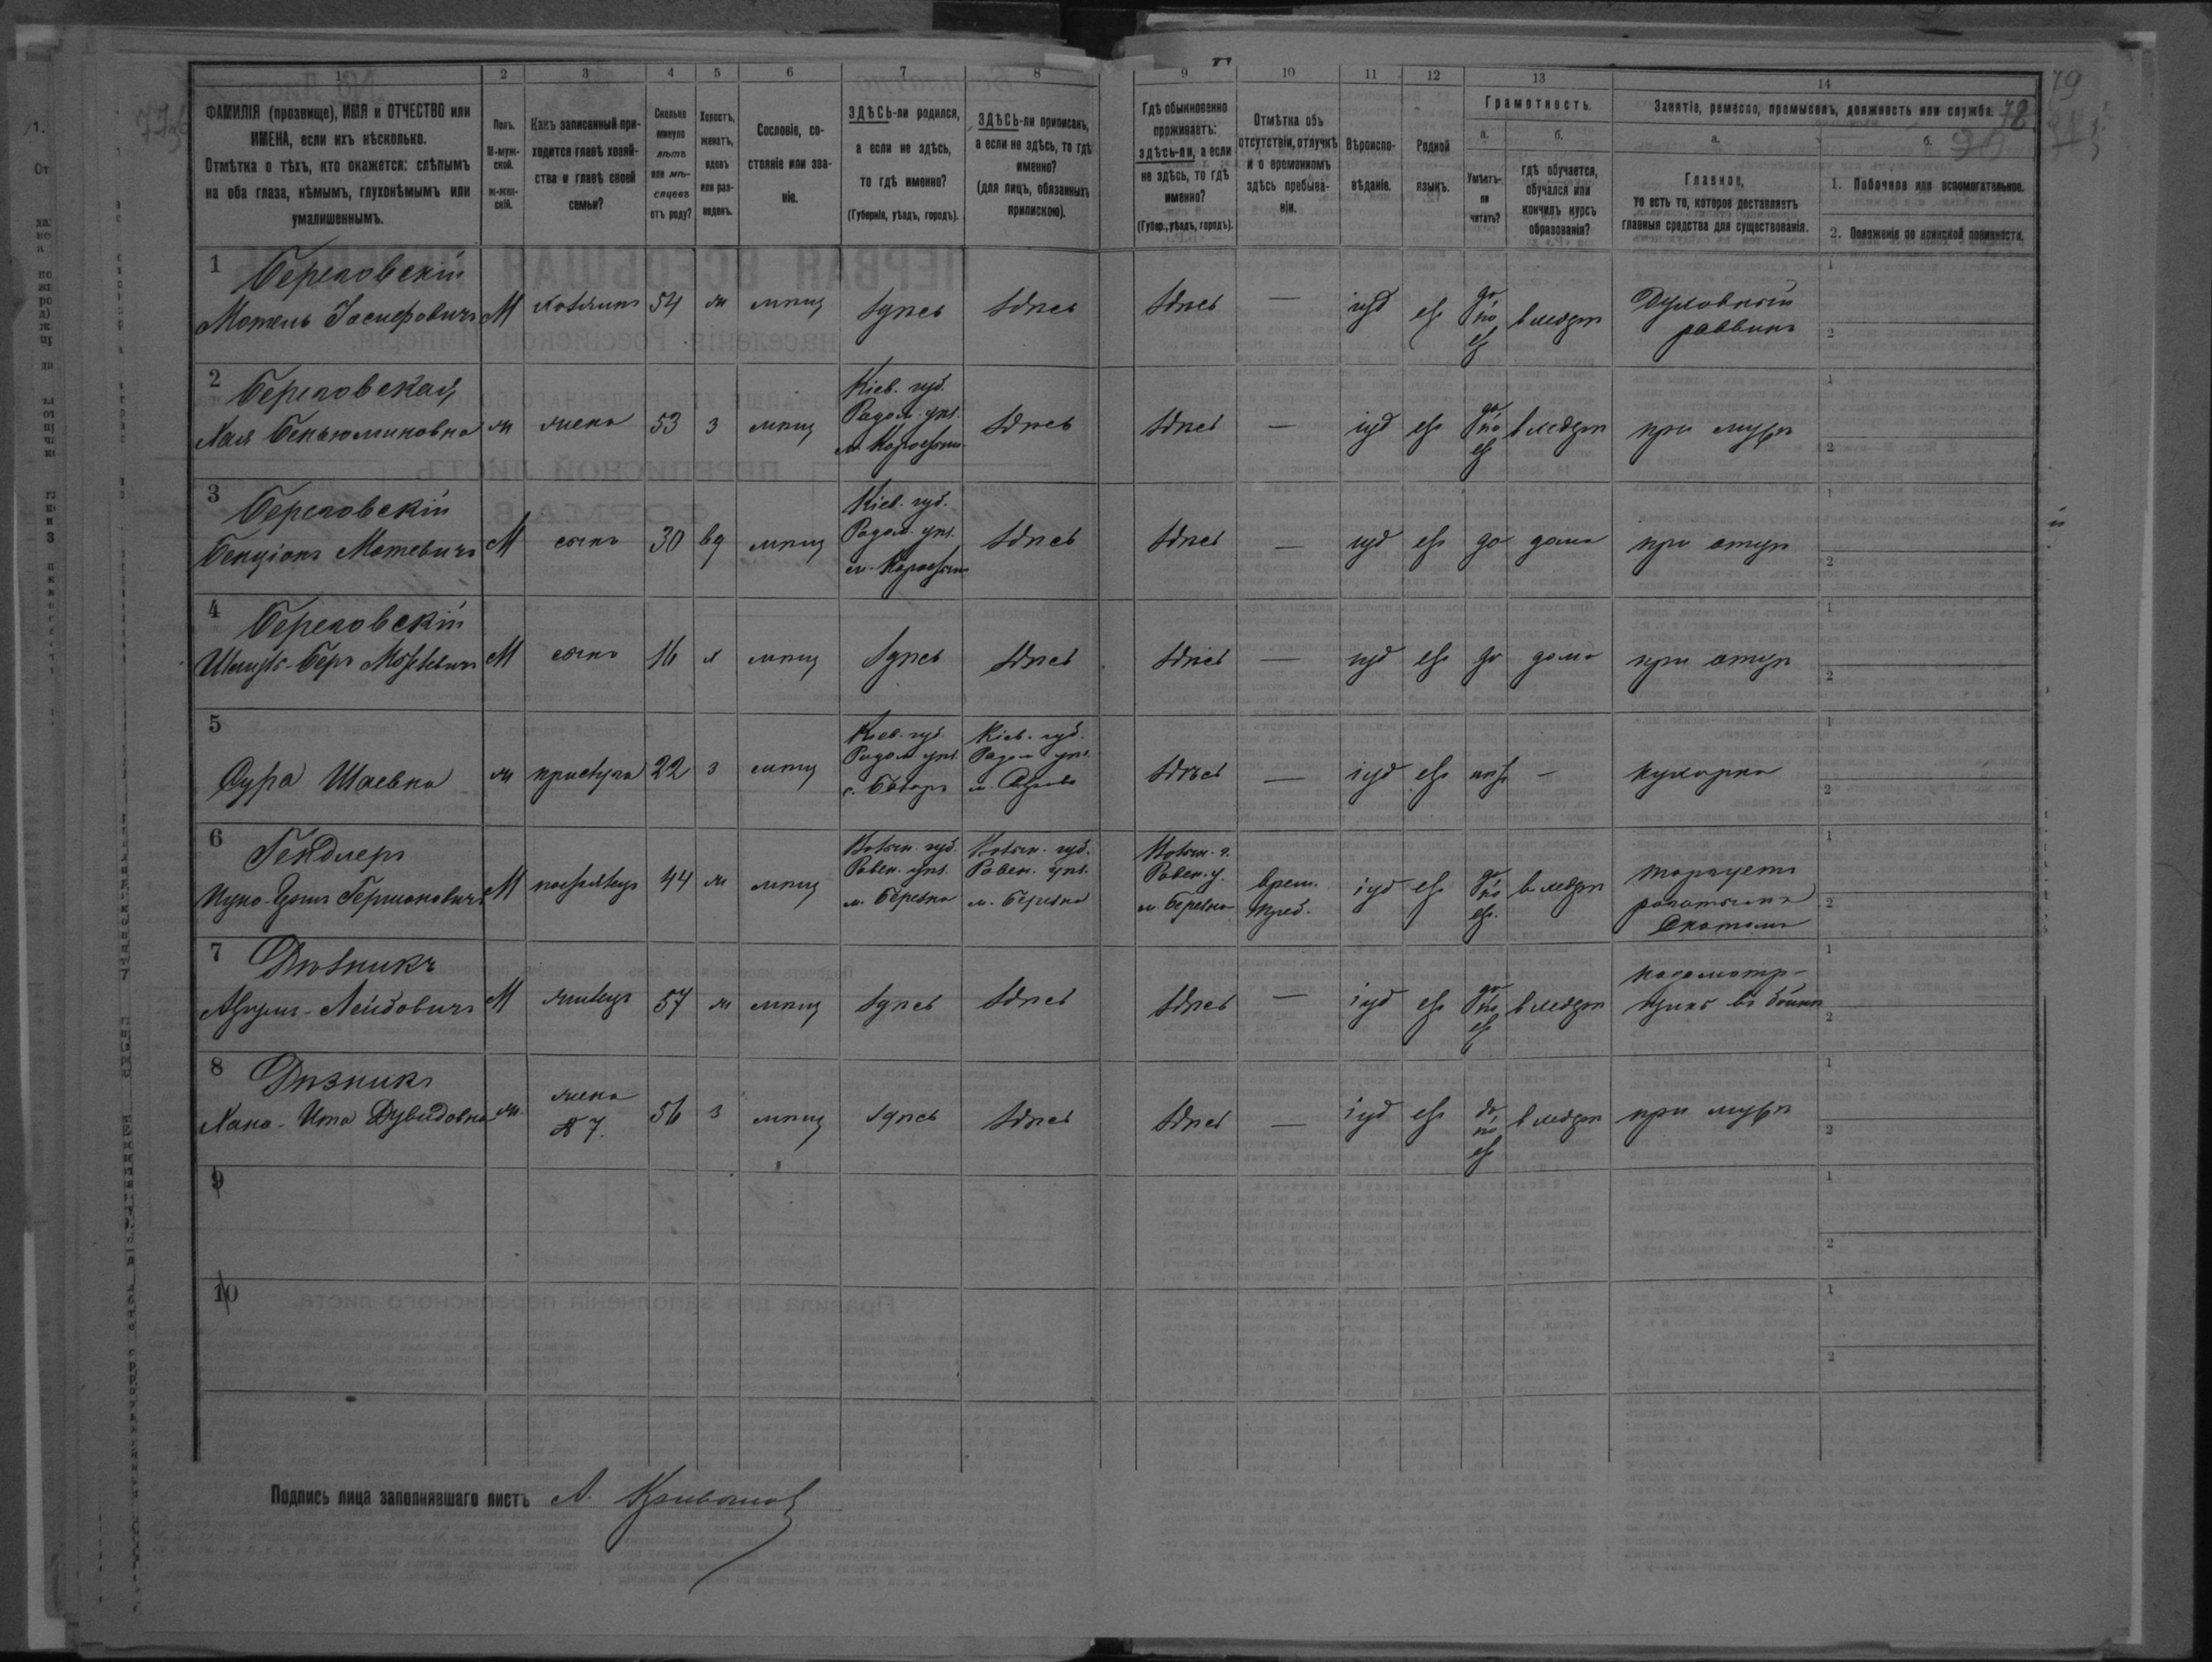 1 2 3 4 5 6 7 8 9 10 11 12 13 14
ФАМИЛІЯ (прозвище), ИМЯ и ОТЧЕСТВО или
ИМЕНА, если ихъ нѣсколько.
Отмѣтка о тѣхъ, кто окажется: слѣпымъ
на оба глаза, нѣмымъ, глухонѣмымъ или
умалишеннымъ.
Полъ.
М-муж-
ской.
ж-жен-
скій.
Какъ записанный при-
ходится главѣ хозяй-
ства и главѣ своей
семьи?
Сколько
минуло
лѣтъ
или мѣ-
сяцевъ
отъ роду?
Холостъ,
женатъ,
вдовъ
или раз-
веденъ.
Сословіе, со-
стояніе или зва-
ніе.
ЗДѢСЬ-ли родился,
а если не здѣсь,
то гдѣ именно?
(Губернія, уѣздъ, городъ).
ЗДѢСЬ-ли приписанъ,
а если не здѣсь, то гдѣ
именно?
(для лицъ, обязанныхъ
припискою).
Гдѣ обыкновенно
проживаетъ:
здѣсь-ли, а если
не здѣсь, то гдѣ
именно?
(Губер., уѣздъ, городъ).
Отмѣтка объ
отсутствіи, отлучкѣ
и о временномъ
здѣсь пребыва-
ніи.
Вѣроиспо-
вѣданіе.
Родной
языкъ.
Грамотность.
а.
Умѣетъ-
ли
читать?
б.
гдѣ обучается,
обучался или
кончилъ курсъ
образованія?
Занятіе, ремесло, промыселъ, должность или служба.
78
79
а.
Главное,
то есть то, которое доставляетъ
главныя средства для существованія.
б.
1. Побочное или вспомогательное.
2. Положеніе по воинской повинности.
1 Береговскій
Мотель Іосифовичъ М хозяинъ 54 ж мѣщ здѣсь здѣсь здѣсь — іуд евр да по евр в медрѣ Духовный
раввинъ
2 Береговская
Хая Беньюминовна ж жена 53 з мѣщ Кіев. губ.
Радом. уѣз.
здѣсь здѣсь — іуд евр да по евр в медрѣ при мужѣ
3 Береговскій
Бенціонъ Мотевичъ М сынъ 30 вд мѣщ Кіев. губ.
Радом. уѣз.
здѣсь здѣсь — іуд евр да дома при отцѣ
4 Береговскій
М сынъ 16 х мѣщ здѣсь здѣсь здѣсь — іуд евр да дома при отцѣ
5
Сура Шаевна ж прислуга 22 з мѣщ Кіев. губ.
Радом. уѣз.
Кіев. губ.
Радом. уѣз.
здѣсь — іуд евр нѣтъ — кухарка
6 Гендлеръ
Германовичъ М 44 ж мѣщ Волын. губ.
Ровен. уѣз.
м. Березна
Волын. губ.
Ровен. уѣз.
м. Березна
Волын. г.
Ровен. у.
м. Березна
врем.
преб.
іуд евр да по евр. в медрѣ торгуетъ
рогатымъ
скотомъ
7 Дизникъ
Лейбовичъ М жилецъ 57 ж мѣщ здѣсь здѣсь здѣсь — іуд евр да по евр в медрѣ надсмотр-
щикъ въ бойнѣ
8 Дизникъ
Хана-Ита Дувидовна ж. жена
№ 7.
56 з мѣщ здѣсь здѣсь здѣсь — іуд евр да по евр в медрѣ при мужѣ
9
10
Подпись лица заполнявшаго листъ А.